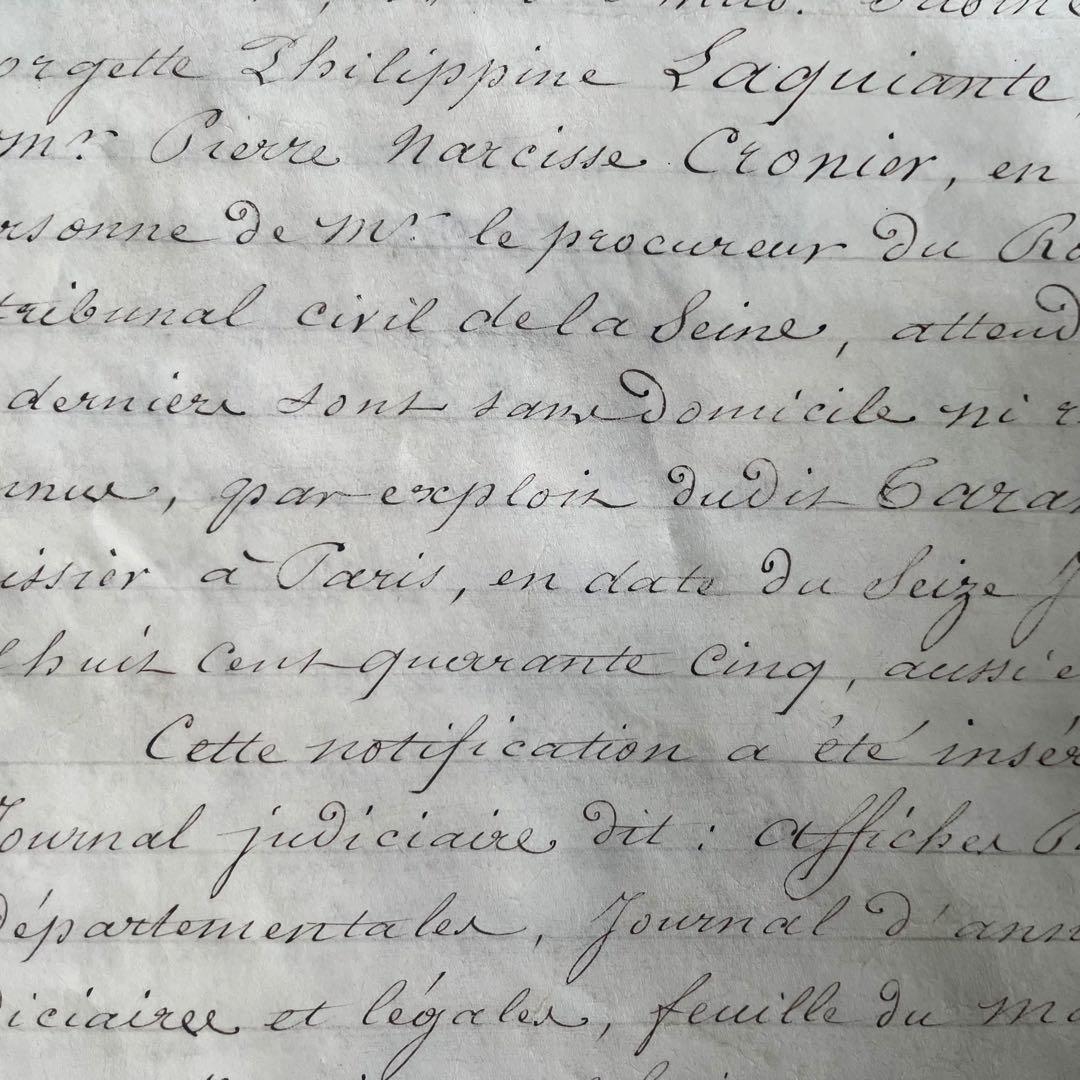 orgette Philippine Laquiante,
mr. Pierre Narcisse Cronier, en
rsonne de Mr. le procureur du Ro
tribunal civil de la Seine, attend
derniers sont sans domicile ni r
nnus, par exploit dudit Taran
issier à Paris, en date du Seize J
l huit cent quarante cinq, aussi e
Cette notification a été insér
Journal judiciaire dit : Affiches P
départementales, Journal d'ann
diciaires et légales, feuille du m